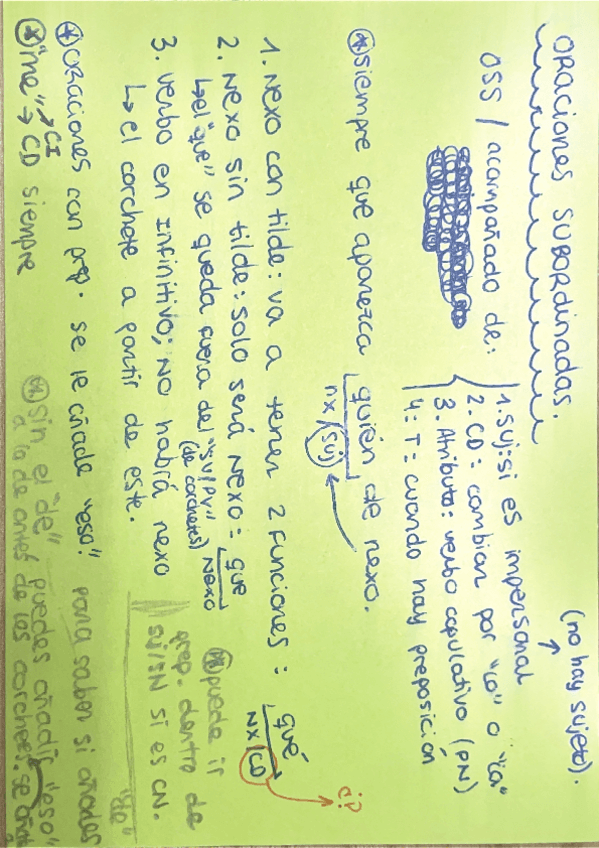 ORACIONES SUBORDINADAS.
(no hay sujeto).
OSS / acompañado de:
1. Suj: si es impersonal
2. CD: cambiar por "lo" o "la"
3. Atributo: verbo copulativo (PN)
4: T = cuando hay preposición
*siempre que aparezca quién de nexo.
nx/Suj
1. Nexo con tilde: va a tener 2 funciones: qué
NX/CD
¿?
2. Nexo sin tilde: solo será nexo: que
nexo
↳ el "que" se queda fuera del "SV/PV"
(de corchetes)
* puede ir
prep. dentro de
SV/SN si es CN.
3. verbo en Infinitivo; NO habrá nexo
↳ el corchete a partir de este.
* ORaciones con prep. se le añade "eso".
para saber si añades
"de"
* "me" → CD siempre
CI
* Sin el "de" puedes añadir "eso"
a la de antes de los corchetes.